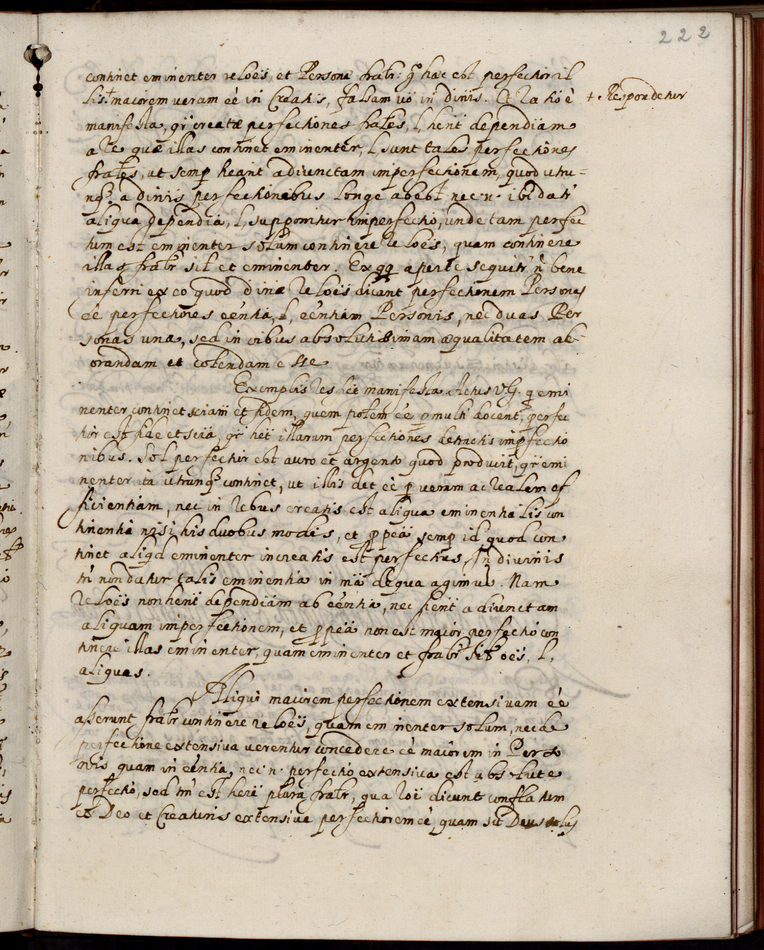 222
continet eminenter reloēs et Personæ fratr: q̃ hæc est perfectior il
lis + maiorem veram eē in Creatis, falsam vō in divis. Et ra hō ē
+ Respondetur
manifesta, qr̃ creatæ perfectiones fratēs, l, hent dependiam
a re quæ illas continet eminenter, l, sunt tales perfectiones
fratēs, ut semp heant adiunctam imperfectionem, quod utrū=
nq̃ȝ a divis perfectionibus longe abest nec n. ibi datr
aliqua dependia, l, supponitur imperfectio, unde tam perfec
tum est eminenter solum continere reloēs, quam continere
illas fratr sit et eminenter. Ex qq aperte sequitr, ñ bene
inferri ex eo quod dinæ reloēs dicant perfectionem Personæ
eē perfectiores eēntia, l, eēntiam Personis, nec duas Per
sonas una, sed in oibus absolutissimam æqualitatem ad
orandam et colendam esse
Exemplis res fiet manifesta Actus V.G. q emi
nenter continet sciam et fidem, quem potem eē multi docent, perfec
tior est fide et scia, qr̃ het illarum perfectiones detractis impfectio
nibus. Sol perfectior est auro et argento quod producit, qr̃ emi
nenter ita utrunqȝ continet, ut illis det eē p veram ac realem ef
ficientiam, nec in rebus creatis est aliqua eminentialis con
tinentia nisi his duobus modis, et ppeā semp id quod con
tinet aliqd eminenter in creatis est perfectius, In divinis
tn̄ non datur talis eminentia in mā de qua agimus. Nam
reloēs non hent dependiam ab eēntia, nec hent adiunctam
aliquam imperfectionem, et ppeā non est maior perfectio con
tinere illas eminenter, quam eminenter et fratr sit oēs, l,
aliquas.
Aliqui maiorem perfectionem extensivam eē
asserunt fratr continere reloēs, quam eminenter solum, nec de
perfectione extensiva verentur concedere eē maiorem in Perso
nis quam in eēntia, nec n. perfectio extensiva est absolute
perfectio, sed tm̄ est here plura fratr, qua roē dicunt conflatum
ex Deo et Creaturis extensive perfectiorem eē quam sit Deus solus